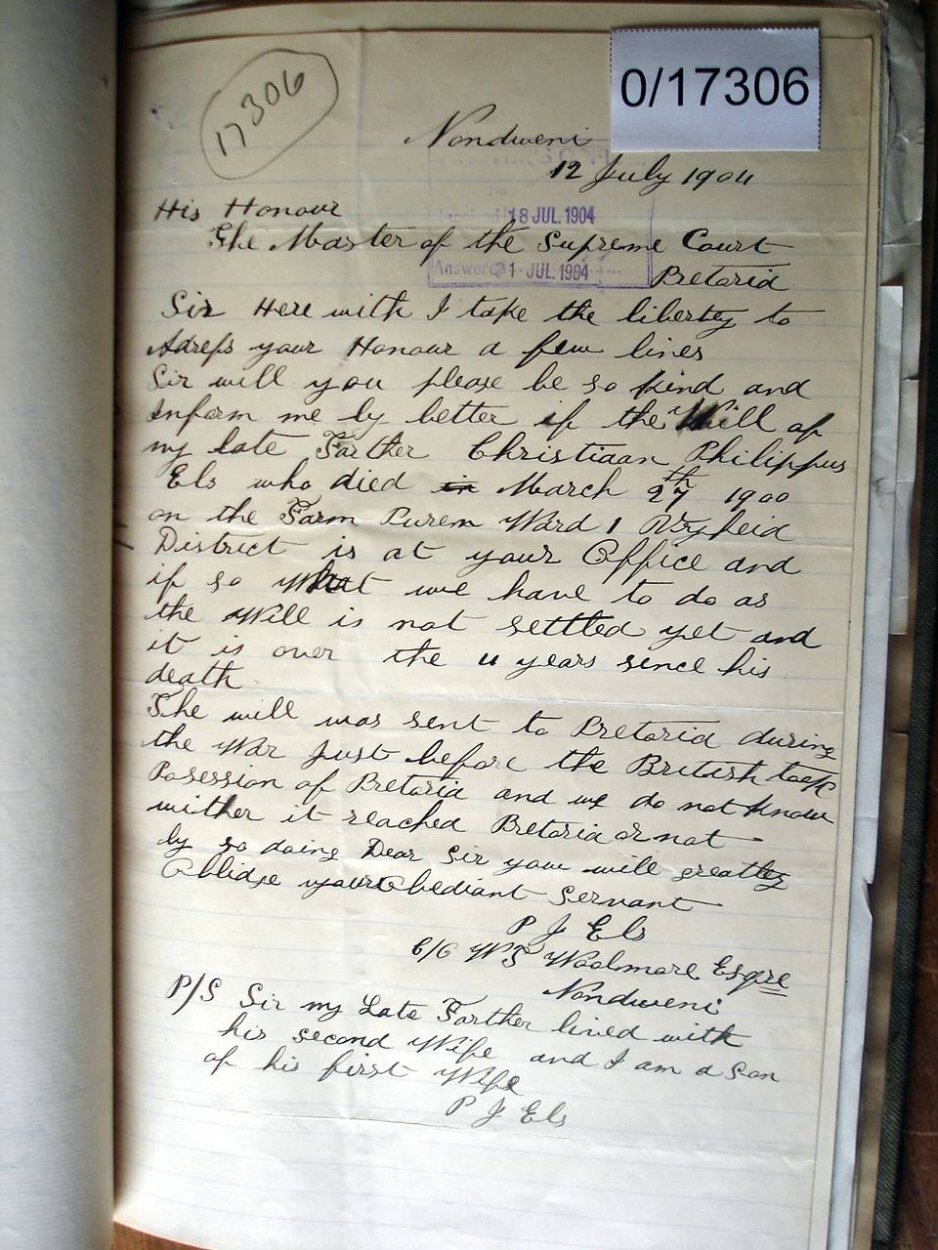 17306
0/17306
Nondweni
12 July 1904
18 JUL. 1904
His Honour
The Master of the Supreme Court
Answered 21 JUL. 1904
Pretoria
Sir Here with I take the liberty to
Adress your Honour a few lines
Sir will you please be so kind and
Inform me by better if the Will of
my late Farther Christiaan Philippus
Els who died in March 27th 1900
on the Farm Purem Ward 1 Vryheid
District is at your Office and
if so What we have to do as
the Will is not settled yet and
it is over the 4 years since his
death
The will was sent to Pretoria during
the War just before the British took
Posession of Pretoria and we do not know
wither it reached Pretoria or not
by so doing Dear Sir your will greatley
Oblidge your Obediant Servant
P J Els
C/O W S Woolmore Esqre
Nondweni
P/S Sir my Late Farther lived with
his second Wife and I am a son
of his first Wife
P J Els